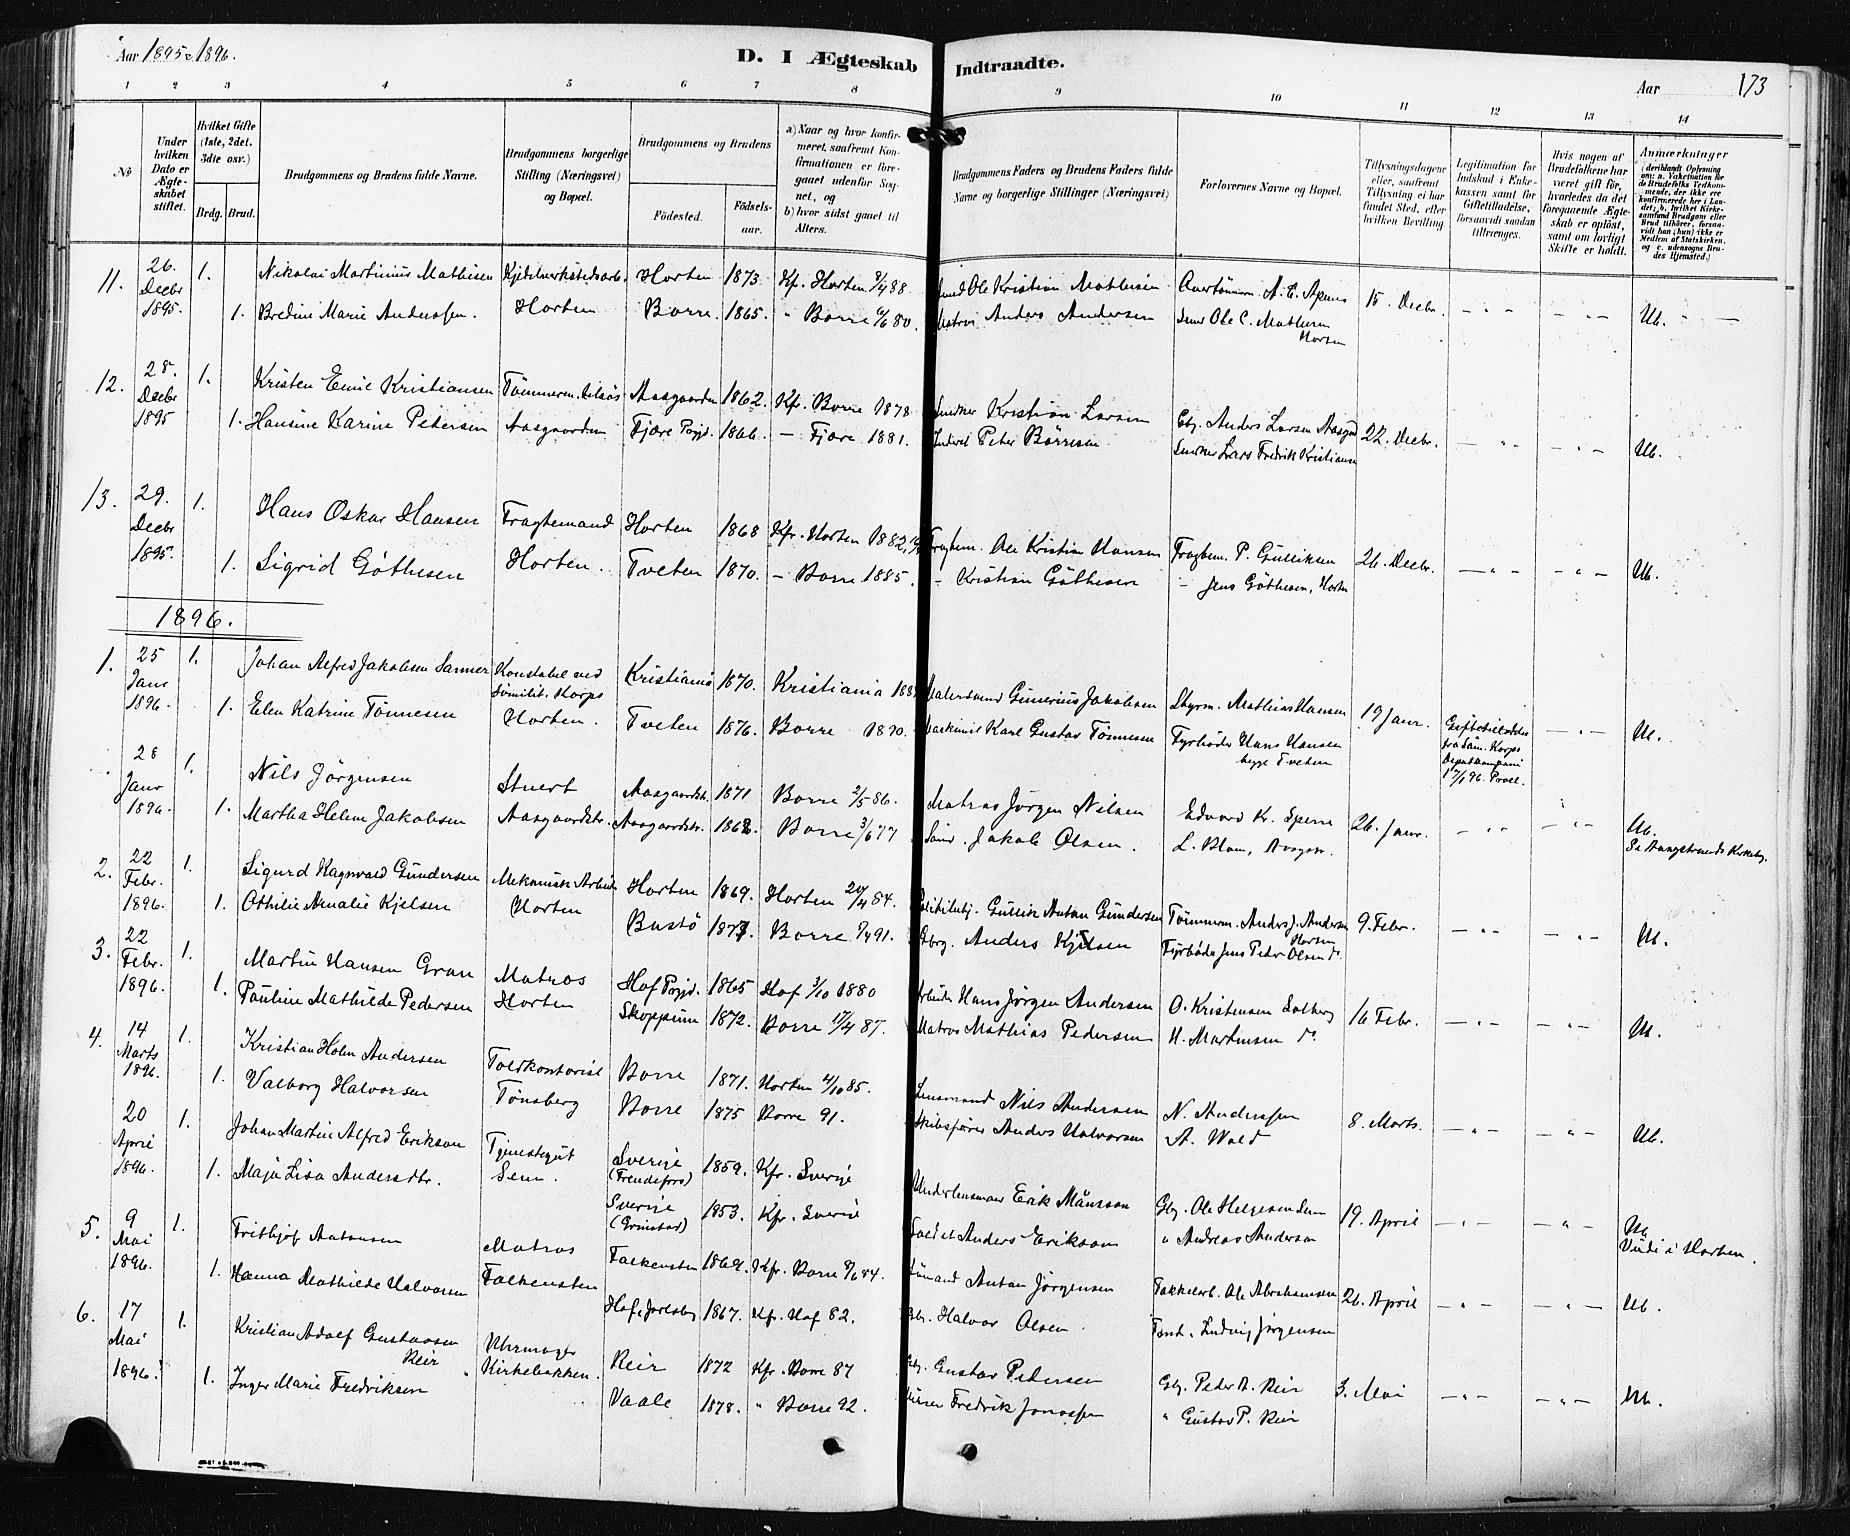 Aar 1895 & 1896.
D. I Ægteskab Indtraadte.
Aar 173
1 2 3 4 5 6 7 8 9 10 11 12 13 14
No.
Under hvilken Dato er Ægteskabet stiftet.
Hvilket Gifte (1ste, 2det, 3die osv.)
Brdg. Brud.
Brudgommens og Brudens fulde Navne.
Brudgommens borgerlige Stilling (Næringsvei) og Bopæl.
Brudgommens og Brudens
Fødested. Fødselsaar.
a) Naar og hvor konfirmeret, saafremt Konfirmationen er foregaaet udenfor Sognet, og
b) hvor sidst gaaet til Alters.
Brudgommens Faders og Brudens Faders fulde Navne og borgerlige Stillinger (Næringsvei)
Forlovernes Navne og Bopæl.
Tillysningsdagene eller, saafremt Tillysning ei har fundet Sted, efter hvilken Bevilling
Legitimation for Indskud i Enkekassen samt for Giftetilladelse, forsaavidt saadan tiltrænges.
Hvis nogen af Brudefolkene har været gift før, hvorledes da det foregaaende Ægteskab er opløst, samt om lovligt Skifte er holdt.
Anmærkninger
11. 26. Decbr 1895. 1. Nikolai Martinius Mathisen Kjedelverkstedsarb. Horten 1873 Kf. Horten 8/4 88 Ole Kristian Mathisen A. E. Apenes 15. Decbr. — " — — " — Ub.
1. Bredine Marie Anderssen. Horten Borre 1865. " Borre 6/6 80. Matros Anders Andersen Ole C. Mathisen Horten
12. 28. Decbr 1895 1. Kristen Emil Kristiansen Tømmerm. Aasgaarden 1862. Kf. Borre 1878 Snedker Kristian Larsen Gbj. Anders Larsen Aasgrd 22. Decbr. — " — — " — Ub.
1. Hansine Karine Petersen Aasgaarden Fjære Prgjd. 1866. — Fjære 1881. Peter Børresen Snedker Lars Fredrik Kristiansen
13. 29. Decbr 1895. 1. Hans Oskar Hansen Fragtemand Horten 1868 Kf. Horten 1882, Fragtem. Ole Kristian Hansen Fragtem. P. Gulliksen 26. Decbr. — " — — " — Ub.
1. Sigrid Gøthesen Horten. Tveten 1870. — Borre 1885. — Kristian Gøthesen — Jens Gøthesen, Horten
1896.
1. 25 Janr 1896. 1. Johan Alfred Jakobsen Sanner Konstabel ved Sømilit. Korps Kristiania 1870. Kristiania Gunerius Jakobsen Styrm. Mathias Hansen 19 Janr. — " — Ub.
1. Elen Katrine Tønnesen Horten. Tveten 1876. Borre 1890. Karl Gustav Tønnesen Fyrbøder Hans Hansen begge Tveten
Giftetilladelse fra Søm. Korps Depotkompani 17/1 96. Prod.
28 Janr 1896. 1. Nils Jørgensen Stuert Aasgaardstr. 1871 Borre 2/5 86. Matros Jørgen Nilsen Edvard Kr. Sperre 26. Janr. — " — — " — Ub.
1. Martha Helene Jakobsen Aasgaardstr. Aasgaardstr. 1862. Borre 3/6 77 Jakob Olsen. L. Blom, Aasgrstr. Se Aasgstrands Kirkebg.
2. 22 Febr. 1896. 1. Sigurd Ragnvald Gundersen Mekanisk Arbeider Horten 1869. Horten 20/4 84. Gullik Antan Gundersen Tømmerm. Anders J. Andersen Horten 9. Febr. — " — — " — Ub.
1. Othilie Amalie Kjelsen Horten Bastø 1877. Borre 9/4 91. Gbrg. Anders Kjelsen Fyrbøder Jens Peter Olsen do.
3. 22 Febr. 1896. 1. Martin Hansen Gran Matros Hof Prgjd. 1865 Hof 3/10 1880 Arbeider Hans Jørgen Andersen O. Kristensen Solberg 16 Febr. — " — — " — Ub.
1. Pauline Mathilde Pedersen Horten Skoppum 1872. Borre 17/4 87. Matros Mathias Pedersen H. Martinsen do.
4. 14 Marts 1896. 1. Kristian Holm Andersen Toldkontorist Borre 1871. Horten 4/10 85. Lensmand Nils Andersen N. Anderssen 8. Marts. — " — — " — Ub.
1. Valborg Halvorsen Tønsberg Borre 1875 Borre 91. Skibsfører Anders Halvorsen A. Wold
20 April 1896. 1. Johan Martin Alfred Erikson Tjenestegut Sverige (Frendefors) 1859. Kf. Sverige Underlensmaer Erik Månsson Gbg. Ole Helgesen Sem 19. April — " — — " — Ub.
1. Maja Lisa Andersdtr. Sem. Sverige (Grinstad) 1853. Kf. Sverige Soldat Anders Erikson " Andreas Anderson Viede i Horten.
5. 9 Mai 1896. 1. Frithjof Antonsen Matros Falkensten 1869. Kf. Borre 9/6 84. Sømand Antan Jørgensen Takkelarb. Ole Abrahamsen 26. April — " — — " — Ub.
1. Hanna Mathilde Halvorsen Falkensten Hof, Jarlsberg 1867. Kf. Hof 82. Gbr. Halvor Olsen. Ludvig Jørgensen
6. 17 Mai 1896. 1. Kristian Adolf Gustavsen Reir Uhrmager Reir 1872 Kf. Borre 87 Gbj. Gustav Pedersen Gbj. Peter A. Reir 3. Mai — " — — " — Ub.
1. Inger Marie Fredriksen Kirkebakken. Vaale 1878. " Borre 92. Fredrik Jonassen " Gustav P. Reir